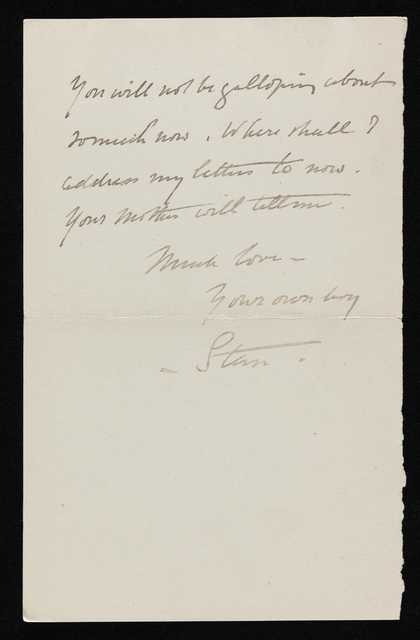 You will not be galloping about
so much now. Where shall I
address my letters to now.
Your mother will tell me.
Much love –
Your own boy
– Stan.